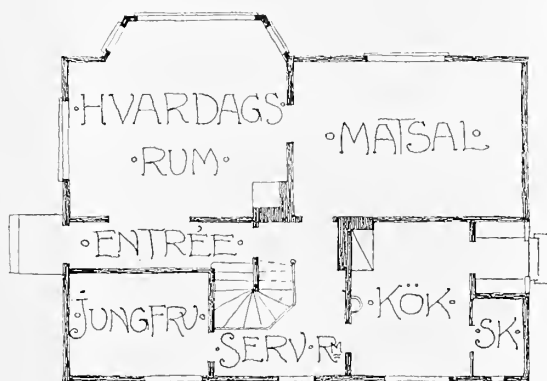 ·HVARDAGS
·RUM·
·MATSAL·
·ENTRÉE·
·JUNGFRU·
·KÖK·
·SERV·R·
·SK·